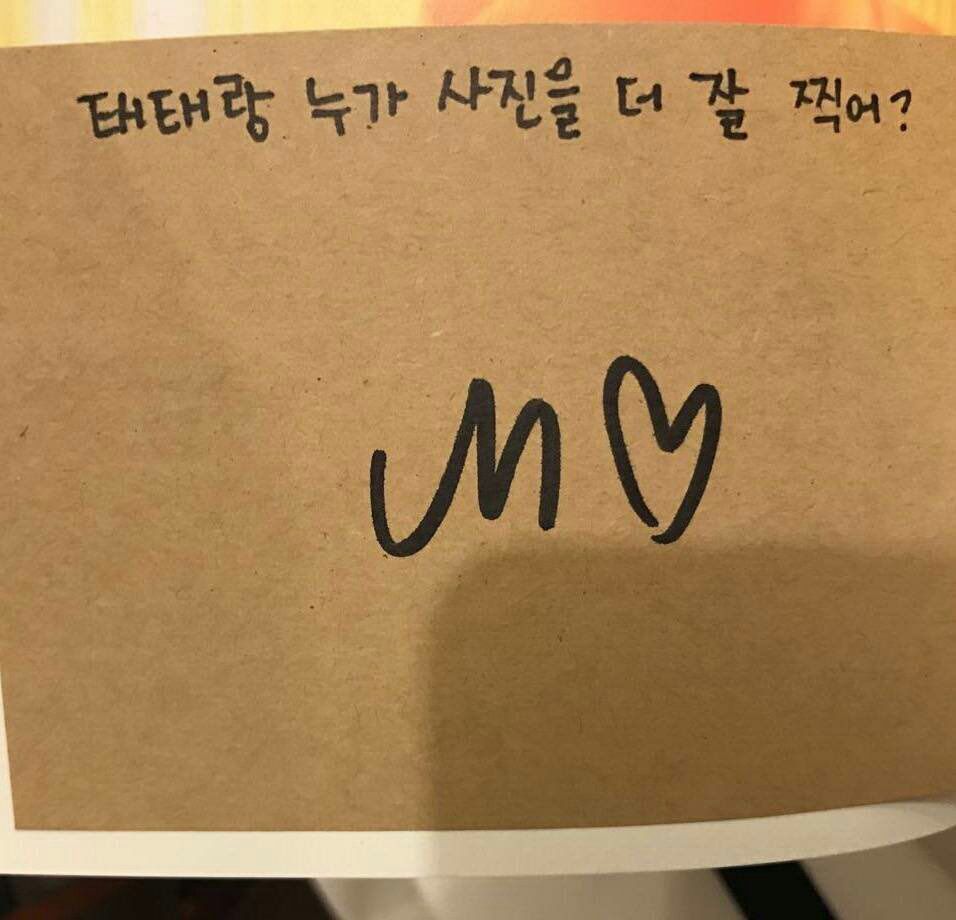 태태랑 누가 사진을 더 잘 찍어?
나♡